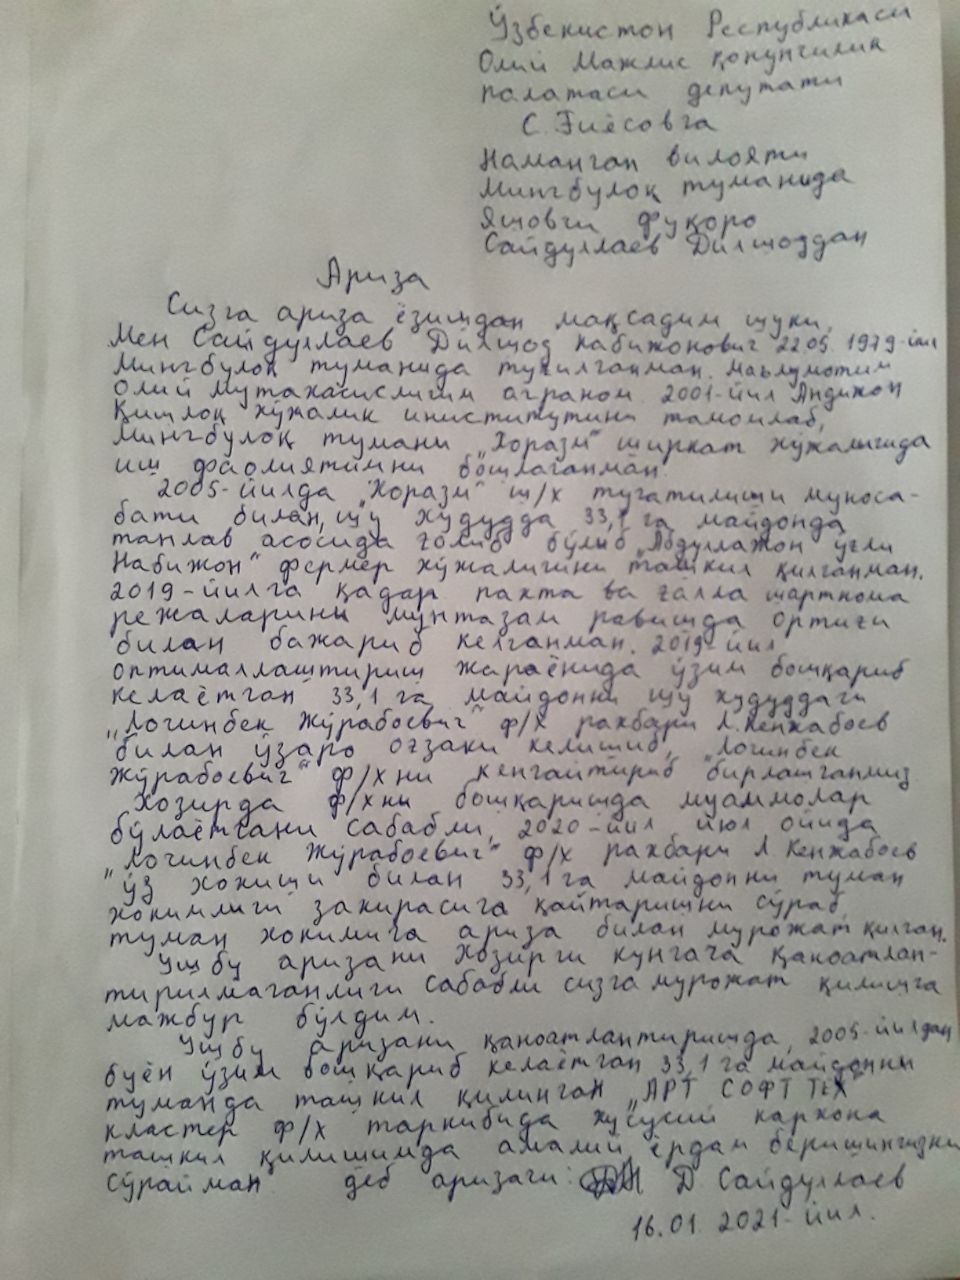 Ўзбекистон Республикаси
Олий Мажлис қонунчилик
палатаси депутати
С. Ғиёсовга
Наманган вилояти
Мингбулоқ туманида
Яшовчи фуқоро
Сайдуллаев Дилшоддан
Ариза
Сизга ариза ёзишдан мақсадим шуки,
Мен Сайдуллаев Дилшод Набижонович 22.05.1979-йил
Мингбулоқ туманида туғилганман. Маълумотим
Олий Мутахасислигим аграном. 2001-йил Андижон
Қишлоқ хўжалик институтини тамомлаб,
Мингбулоқ тумани „Хоразм" ширкат хўжалигида
иш фаолиятимни бошлаганман.
2005-йилда „Хоразм" ш/х тугатилиши муноса-
бати билан, шу худудда 33,1 га майдонда
танлав асосида ғолиб бўлиб „Абдуллажон ўғли
Набижон" фермер хўжалигини ташкил қилганман.
2019-йилга қадар пахта ва ғалла шартнома
режаларини мунтазам равишда ортиғи
билан бажариб келганман. 2019-йил
оптималлаштириш жараёнида ўзим бошқариб
келаётган 33,1 га майдонни шу худуддаги
„Лочинбек Жўрабоевич" ф/х рахбари Л.Кенжабоев
билан ўзаро оғзаки келишиб, „Лочинбек
Жўрабоевич" ф/хни кенгайтириб бирлашганмиз.
Хозирда ф/хни бошқаришда муаммолар
бўлаётгани сабабли, 2020-йил июл ойида
"Лочинбек Жўрабоевич" ф/х рахбари Л.Кенжабоев
ўз хохиши билан 33,1 га майдонни туман
хокимлиги захирасига қайтаришни сўраб,
туман хокимига ариза билан мурожат қилган.
Ушбу аризани Хозирги кунгача қаноатлан-
тирилмаганлиги сабабли сизга мурожат қилишга
мажбур бўлдим.
Ушбу аризани қаноатлантиришда, 2005-йилдан
буён ўзим бошқариб келаётган 33,1 га майдонни
туманда ташкил қилинган „АРТ СОФТ ТЕХ"
кластер ф/х таркибида хусусий кархона
ташкил қилишимда амалий ёрдам беришингизни
сўрайман деб аризачи: Д. Сайдуллаев
16.01.2021-йил.